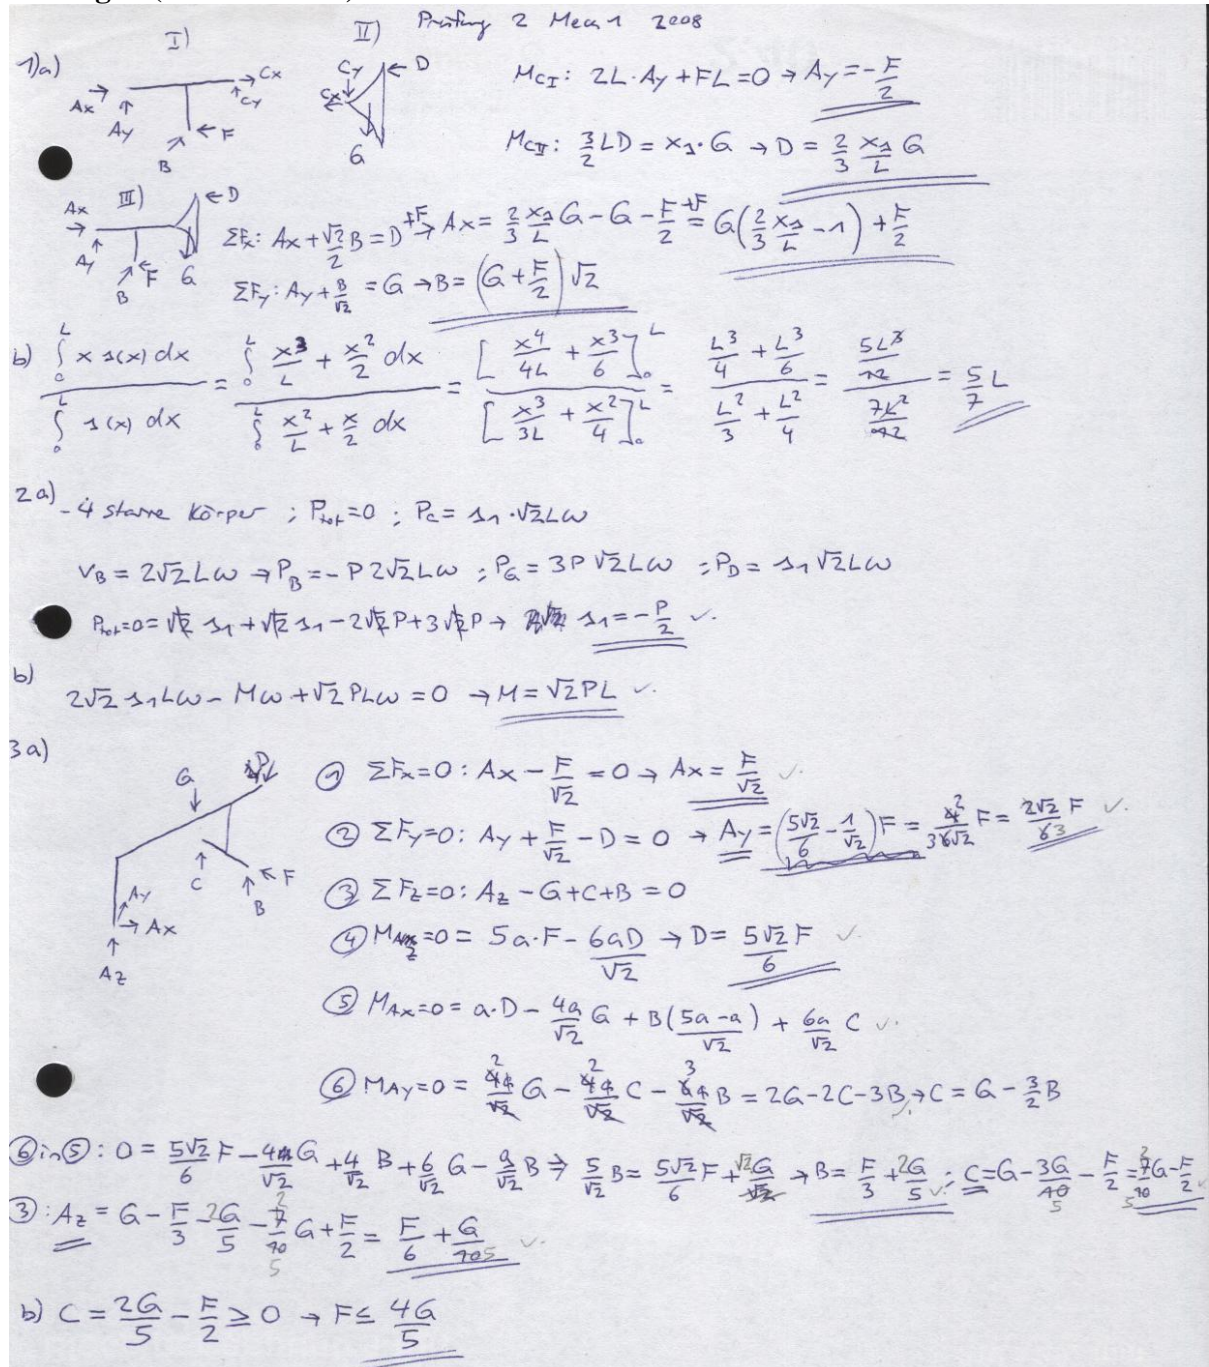 Prüfung 2 Mech 1 2008
1)a)
I)
II)
Ax Ay B F Cx Cy
Cy Cx G D
M_CI: 2L·Ay + FL = 0 → Ay = -F/2
M_CII: 3/2 LD = x_s·G → D = 2/3 x_s/L G
III)
Ax Ay B F G D
ΣFx: Ax + √2/2 B = D +F → Ax = 2/3 x_s/L G - G - F/2 +F = G(2/3 x_s/L - 1) + F/2
ΣFy: Ay + B/√2 = G → B = (G + F/2) √2
b) ∫₀ᴸ x s(x) dx / ∫₀ᴸ s(x) dx = ∫₀ᴸ x³/L + x²/2 dx / ∫₀ᴸ x²/L + x/2 dx = [x⁴/4L + x³/6]₀ᴸ / [x³/3L + x²/4]₀ᴸ = (L³/4 + L³/6) / (L²/3 + L²/4) = (5L³/12) / (7L²/12) = 5/7 L
2a) - 4 starre Körper ; P_tot = 0 ; P_C = s₁·√2Lω
v_B = 2√2Lω → P_B = -P 2√2Lω ; P_G = 3P√2Lω ; P_D = s₁√2Lω
P_tot = 0 = √2 s₁ + √2 s₁ - 2√2P + 3√2P → s₁ = -P/2 ✓.
b)
2√2 s₁Lω - Mω + √2PLω = 0 → M = √2PL ✓.
3a)
G D C B F Ay Ax Az
① ΣFx=0: Ax - F/√2 = 0 → Ax = F/√2 ✓.
② ΣFy=0: Ay + F/√2 - D = 0 → Ay = (5√2/6 - 1/√2)F = 2/3√2 F = 2√2F/3 ✓.
③ ΣFz=0: Az - G + C + B = 0
④ M_Az = 0 = 5a·F - 6aD/√2 → D = 5√2F/6 ✓
⑤ M_Ax = 0 = a·D - 4a/√2 G + B(5a-a)/√2 + 6a/√2 C ✓.
⑥ M_Ay = 0 = 2G - 2C - 3B = 2G - 2C - 3B → C = G - 3/2 B
⑥ in ⑤: 0 = 5√2/6 F - 4/√2 G + 4/√2 B + 6/√2 G - 9/√2 B ⇒ 5/√2 B = 5√2/6 F + √2G → B = F/3 + 2G/5 ✓. ; C = G - 3G/5 - F/2 = 2/5 G - F/2 ✓
③: Az = G - F/3 - 2G/5 - 2/5 G + F/2 = F/6 + G/5 ✓.
b) C = 2G/5 - F/2 ≥ 0 → F ≤ 4G/5